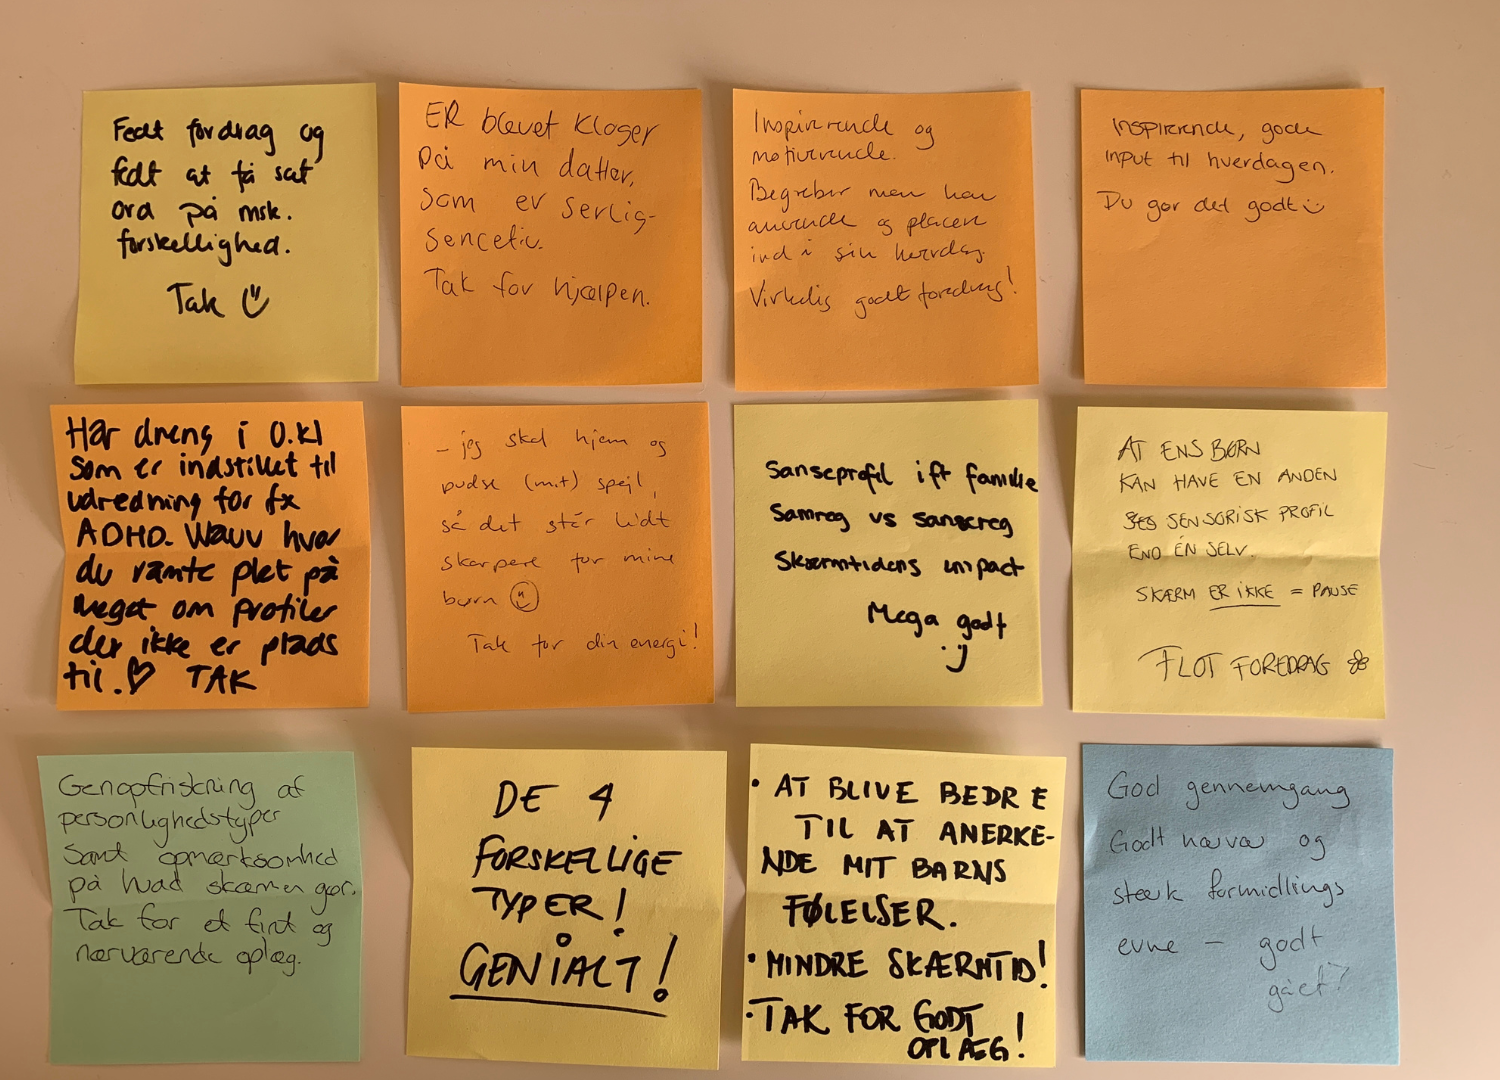 Fedt fordrag og
fedt at få sat
ord på msk.
forskellighed.
Tak
ER blevet kloger
på min datter,
som er serlig-
sencetiv.
Tak for hjælpen.
Inspirerende og
motiverende.
Begreber man kan
anvende og placere
ind i sin hverdag.
Virkelig godt foredrag!
Inspirerende, gode
input til hverdagen.
Du gør det godt
Har dreng i 0.kl
som er indstillet til
udredning for fx
ADHD. Wauv hvor
du ramte plet på
meget om profiler
der ikke er plads
til. TAK
- jeg skal hjem og
pudse (mit) spejl,
så det står lidt
skarpere for mine
børn
Tak for din energi!
Sanseprofil ift familie
Samreg vs sansereg
Skærmtidens impact
Mega godt
AT ENS BØRN
KAN HAVE EN ANDEN
SENSORISK PROFIL
END ÉN SELV.
SKÆRM ER IKKE = PAUSE
FLOT FOREDRAG
Genopfriskning af
personlighedstyper
Samt opmærksomhed
på hvad skærmen gør.
Tak for et fint og
nærværende oplæg.
DE 4
FORSKELLIGE
TYPER!
GENIALT!
• AT BLIVE BEDRE
TIL AT ANERKE-
NDE MIT BARNS
FØLELSER.
• MINDRE SKÆRMTID!
• TAK FOR GODT
OPLÆG!
God gennemgang
Godt nærvær og
stærk formidlings
evne - godt
gået!